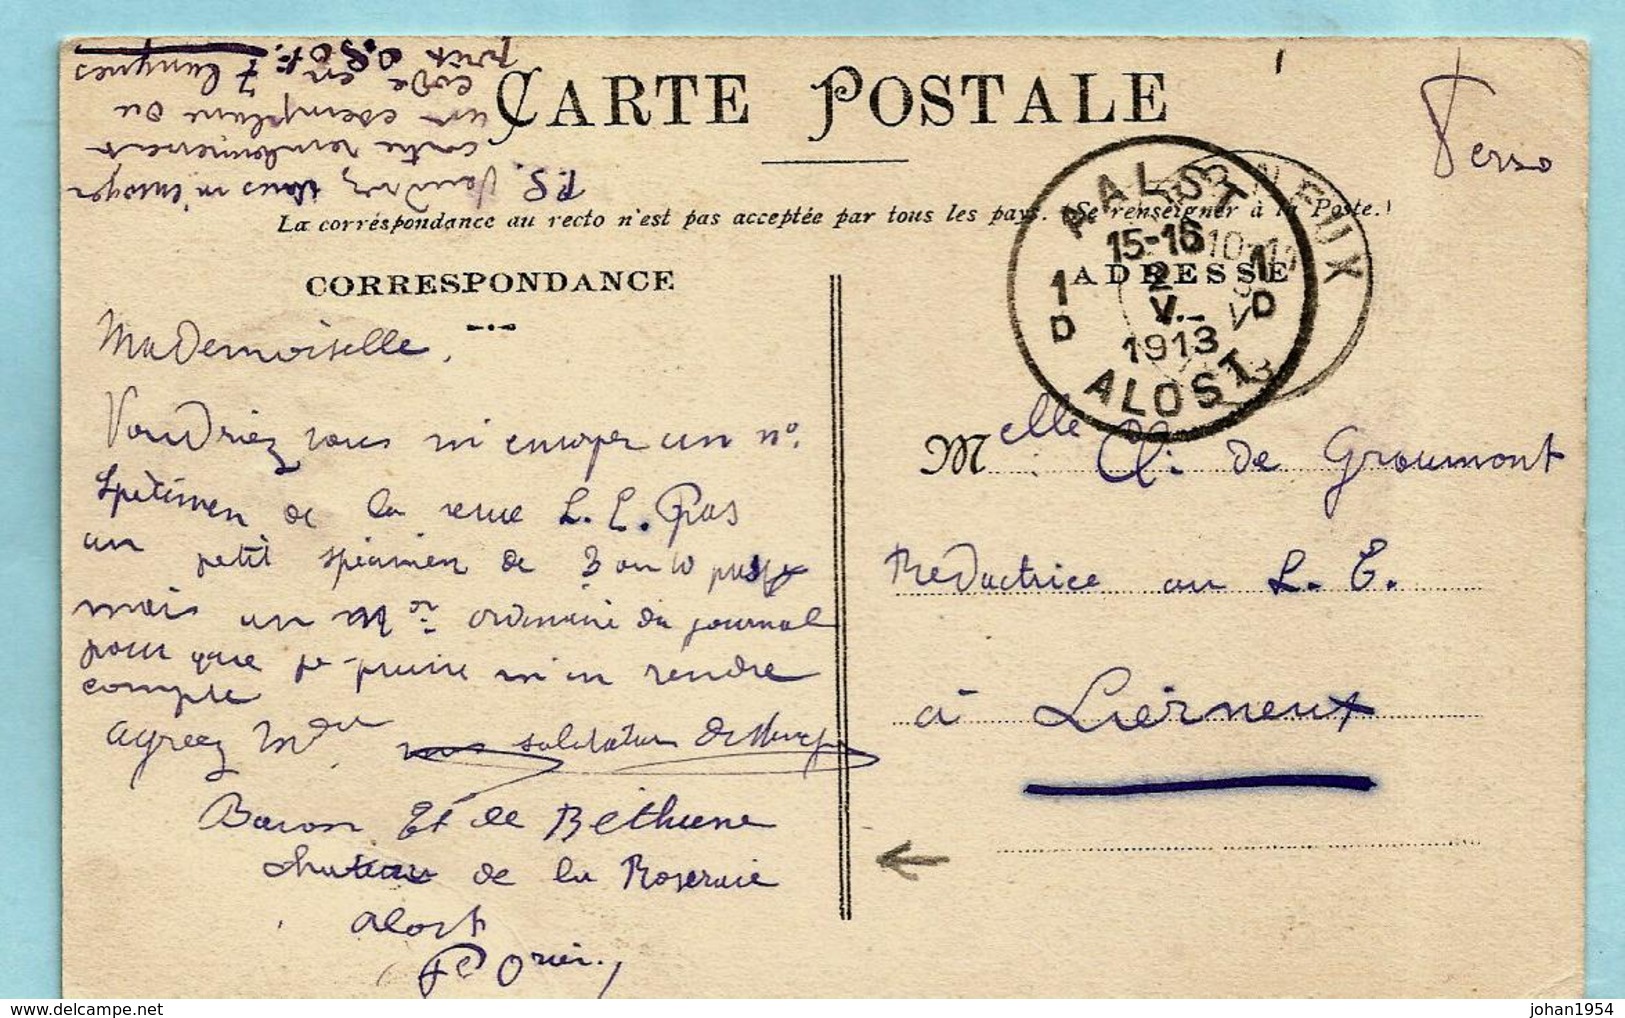 CARTE POSTALE
Verso
La correspondance au recto n'est pas acceptée par tous les pays. (Se renseigner à la Poste.)
P.S. Voudriez vous m'envoyer
contre remboursement
un exemplaire du
code en 7 langues
prix 0.50 f.
CORRESPONDANCE
Mademoiselle,
Voudriez vous m'envoyer un n°.
spécimen de la revue L. E. Pas
un petit spécimen de 3 ou 10 pages
mais un ordinaire du journal
pour que je puisse m'en rendre
compte
agréez salutations
Baron de Béthune
chateau de la Roseraie
Alost
ADRESSE
AALST
15-16
2
V.
1913
1 D
1 D
ALOST
LIERNEUX
Melle Cl. de Groumont
Rédactrice au L. E.
à Lierneux
johan1954